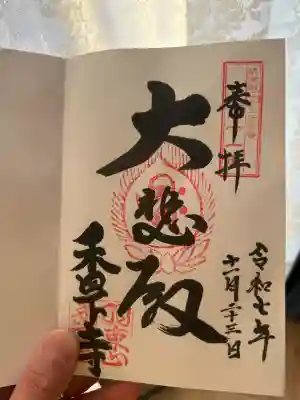 奉拝
令和七年
十一月二十三日
大悲殿
香下寺